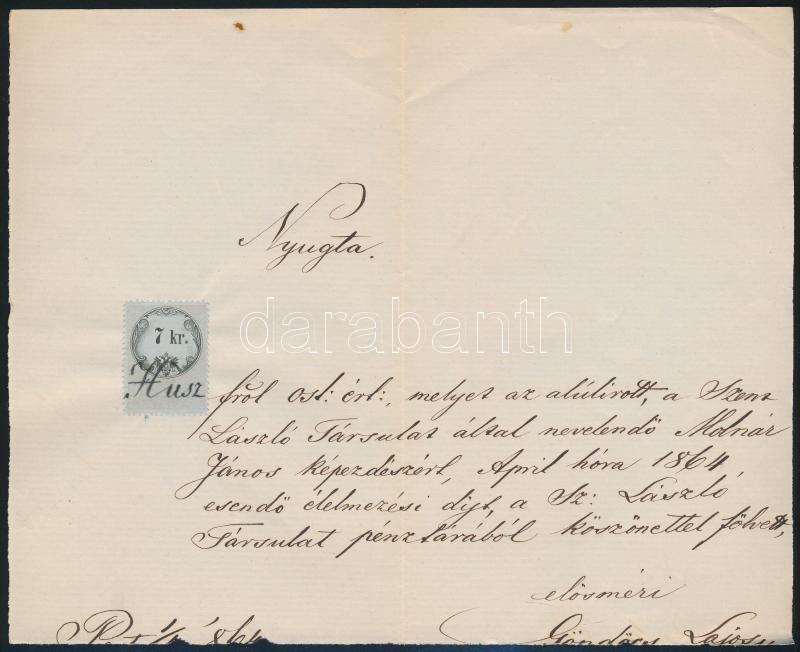 Nyugta.
7 kr.
Husz frol ost: ért:, melyet az alúlirott, a Szent
László Társulat által nevelendö Molnár
János képezdészért, April hóra 1864
esendö élelmezési dijt, a Sz: László
Társulat pénztárából köszönettel fölvett,
elösméri
Pest 1/4 864 Göndöcs Lajos
darabanth